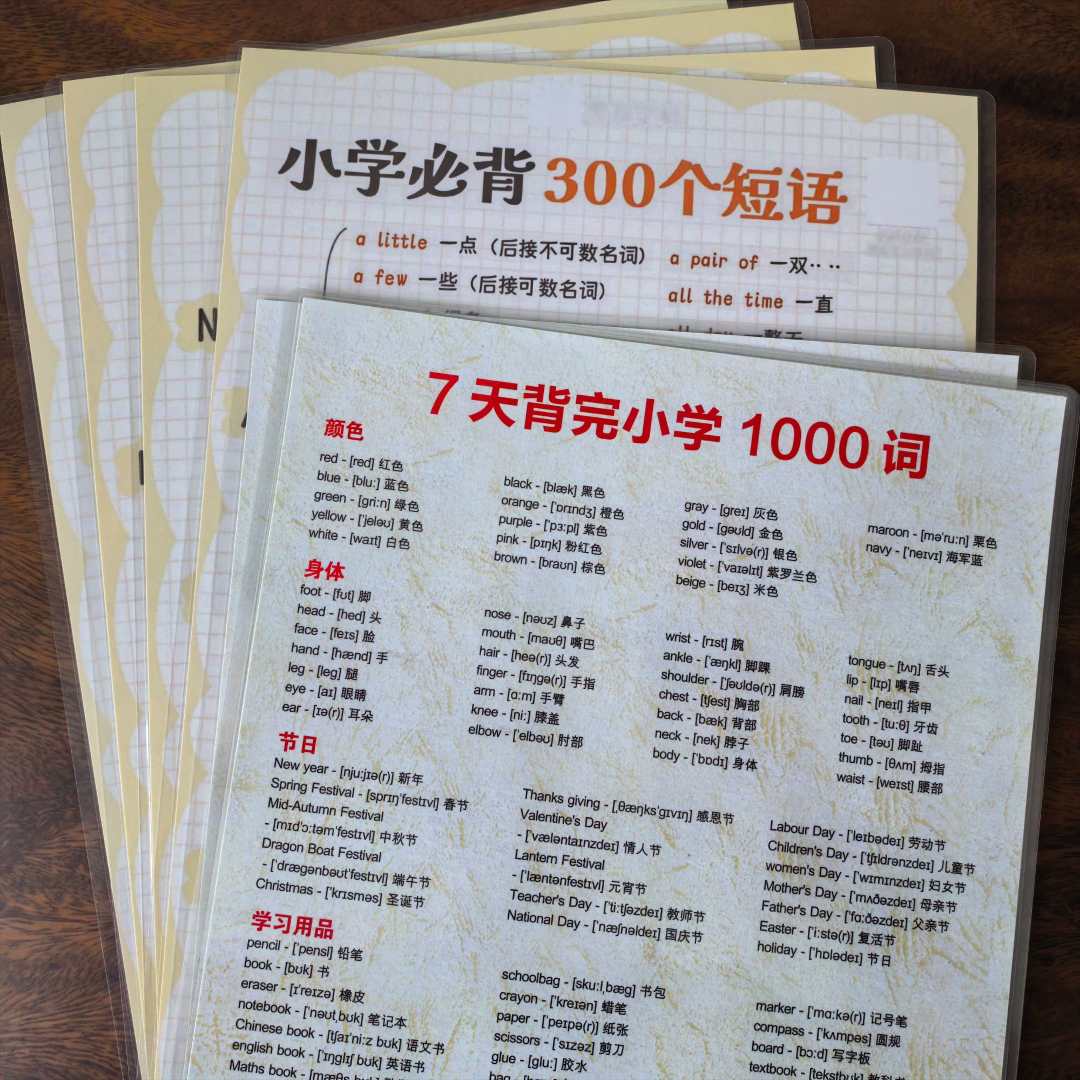 小学必背300个短语
a little 一点（后接不可数名词）
a few 一些（后接可数名词）
a pair of 一双‥‥
all the time 一直
N
7天背完小学1000词
颜色
red - [red] 红色
blue - [blu:] 蓝色
green - [gri:n] 绿色
yellow - ['jeləu] 黄色
white - [waɪt] 白色
black - [blæk] 黑色
orange - ['ɒrɪndʒ] 橙色
purple - ['pɜ:pl] 紫色
pink - [pɪŋk] 粉红色
brown - [braʊn] 棕色
gray - [greɪ] 灰色
gold - [gəʊld] 金色
silver - ['sɪlvə(r)] 银色
violet - ['vaɪəlɪt] 紫罗兰色
beige - [beɪʒ] 米色
maroon - [mə'ru:n] 栗色
navy - ['neɪvɪ] 海军蓝
身体
foot - [fʊt] 脚
head - [hed] 头
face - [feɪs] 脸
hand - [hænd] 手
leg - [leg] 腿
eye - [aɪ] 眼睛
ear - [ɪə(r)] 耳朵
nose - [nəʊz] 鼻子
mouth - [maʊθ] 嘴巴
hair - [heə(r)] 头发
finger - [fɪŋgə(r)] 手指
arm - [ɑ:m] 手臂
knee - [ni:] 膝盖
elbow - ['elbəʊ] 肘部
wrist - [rɪst] 腕
ankle - ['æŋkl] 脚踝
shoulder - ['ʃəʊldə(r)] 肩膀
chest - [tʃest] 胸部
back - [bæk] 背部
neck - [nek] 脖子
body - ['bɒdɪ] 身体
tongue - [tʌŋ] 舌头
lip - [lɪp] 嘴唇
nail - [neɪl] 指甲
tooth - [tu:θ] 牙齿
toe - [təʊ] 脚趾
thumb - [θʌm] 拇指
waist - [weɪst] 腰部
节日
New year - [nju:jɪə(r)] 新年
Spring Festival - [sprɪŋ'festɪvl] 春节
Mid-Autumn Festival
- [mɪd'ɔ:təm'festɪvl] 中秋节
Dragon Boat Festival
- ['drægənbəʊt'festɪvl] 端午节
Christmas - ['krɪsməs] 圣诞节
Thanks giving - [ˌθæŋks'gɪvɪŋ] 感恩节
Valentine's Day
- ['væləntaɪnzdeɪ] 情人节
Lantern Festival
- ['læntənfestɪvl] 元宵节
Teacher's Day - ['ti:tʃəzdeɪ] 教师节
National Day - ['næʃnəldeɪ] 国庆节
Labour Day - ['leɪbədeɪ] 劳动节
Children's Day - ['tʃɪldrənzdeɪ] 儿童节
women's Day - ['wɪmɪnzdeɪ] 妇女节
Mother's Day - ['mʌðəzdeɪ] 母亲节
Father's Day - ['fɑ:ðəzdeɪ] 父亲节
Easter - ['i:stə(r)] 复活节
holiday - ['hɒlədeɪ] 节日
学习用品
pencil - ['pensl] 铅笔
book - [bʊk] 书
eraser - [ɪ'reɪzə] 橡皮
notebook - ['nəʊtˌbʊk] 笔记本
Chinese book - [tʃaɪ'ni:z bʊk] 语文书
english book - ['ɪŋglɪʃ bʊk] 英语书
Maths book -
schoolbag - [sku:lˌbæg] 书包
crayon - ['kreɪən] 蜡笔
paper - ['peɪpə(r)] 纸张
scissors - ['sɪzəz] 剪刀
glue - [glu:] 胶水
marker - ['mɑ:kə(r)] 记号笔
compass - ['kʌmpəs] 圆规
board - [bɔ:d] 写字板
textbook -